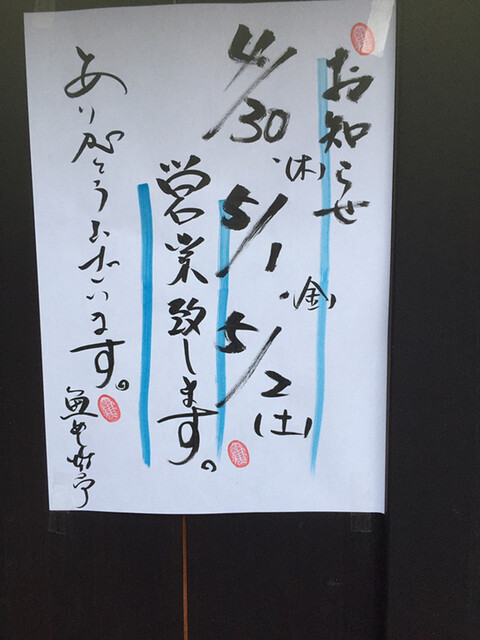 お知らせ
4/30(木)
5/1(金)
5/2(土)
営業致します。
ありがとうございます。